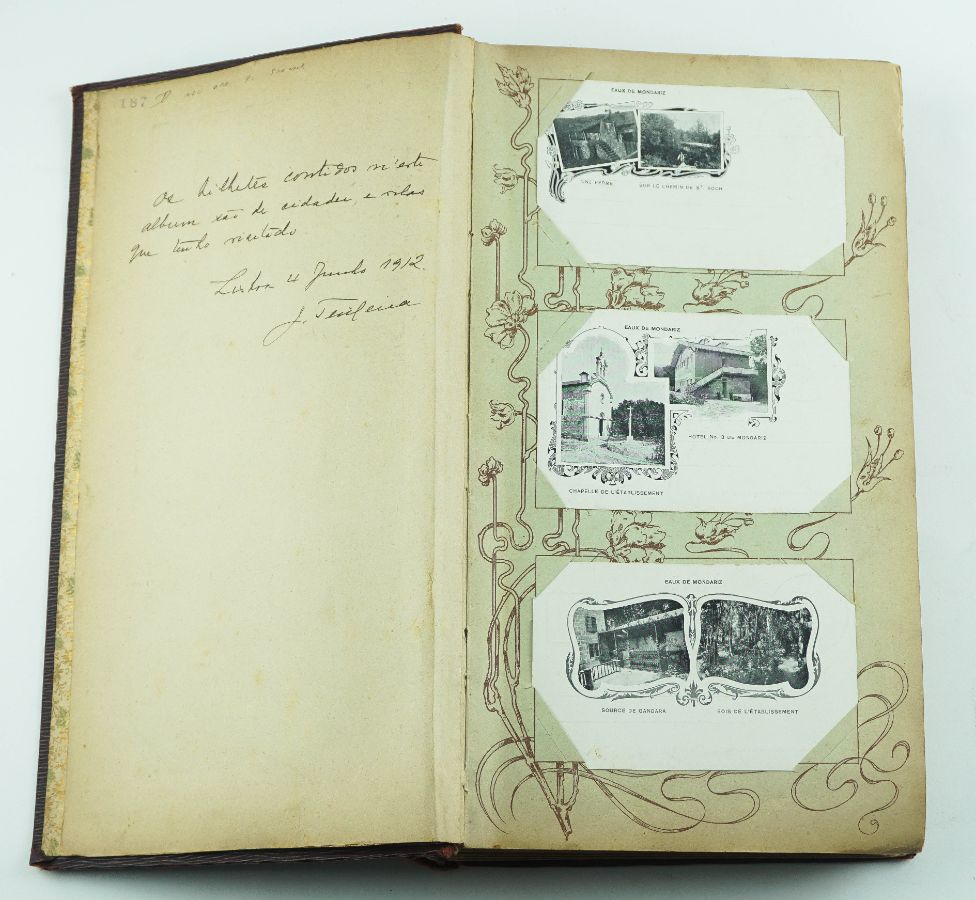 187
Os bilhetes contidos n'este
album são de cidades, e vilas
que tenho visitado
Lisboa 4 Junho 1912.
J. Teixeira
EAUX DE MONDARIZ
UNE FERME
SUR LE CHEMIN DE ST. ROCH
EAUX DE MONDARIZ
HOTEL No. 3 DE MONDARIZ
CHAPELLE DE L'ÉTABLISSEMENT
EAUX DE MONDARIZ
SOURCE DE GANDARA
BOIS DE L'ÉTABLISSEMENT